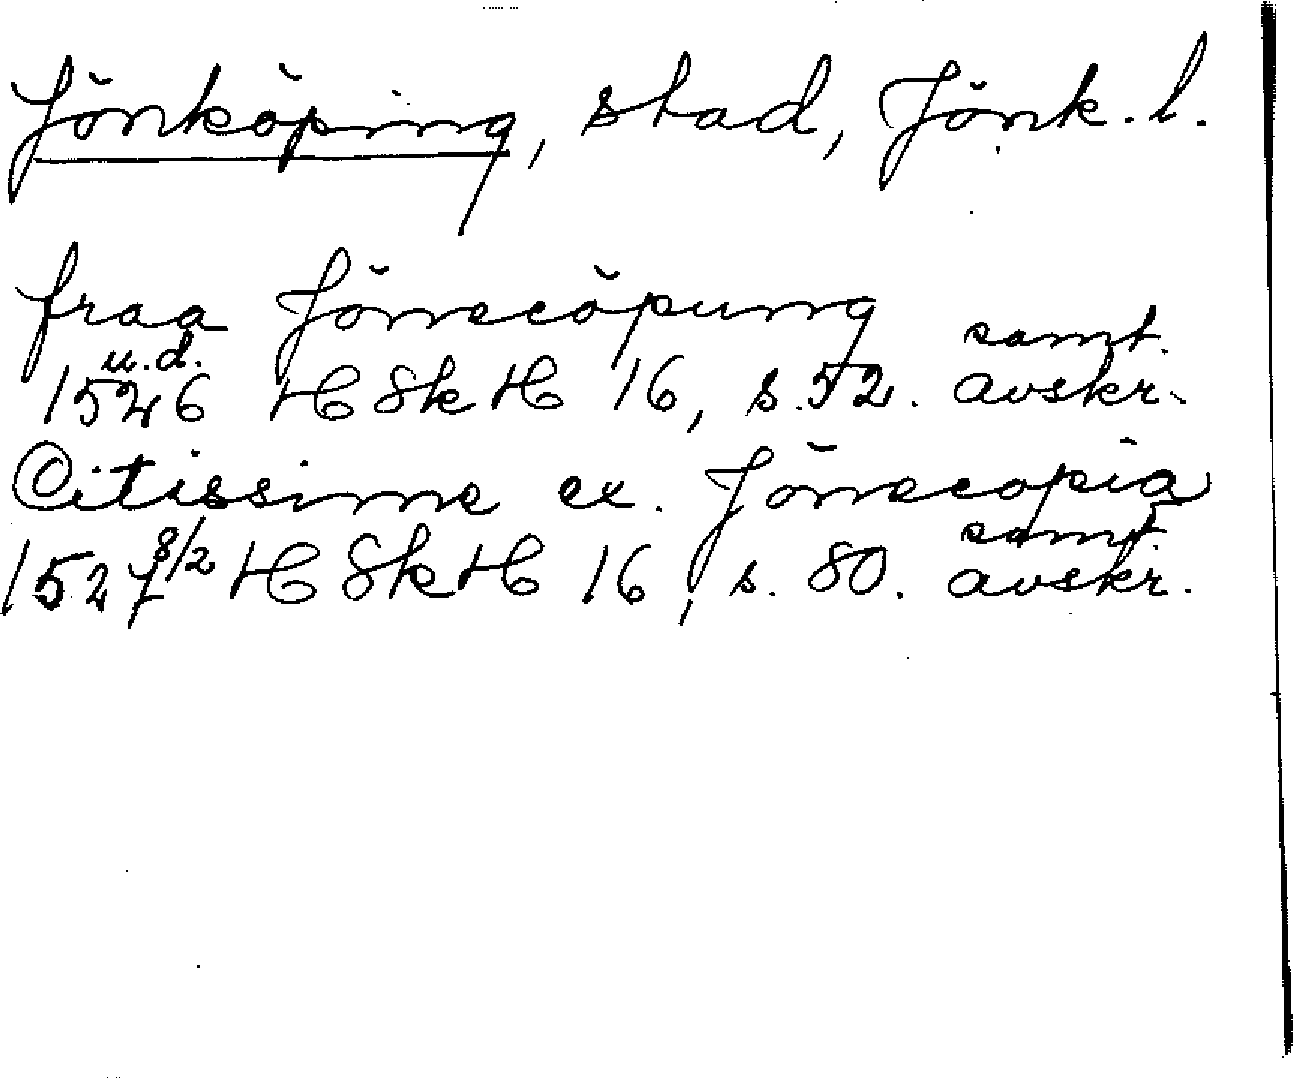 Jönköping, stad, Jönk. l.
fraa Jönecöpung
1526 u.d. HSkH 16, s. 52. samt. avskr.
Citissime ex. Jönecopia
1527 8/2 HSkH 16, s. 80. samt. avskr.